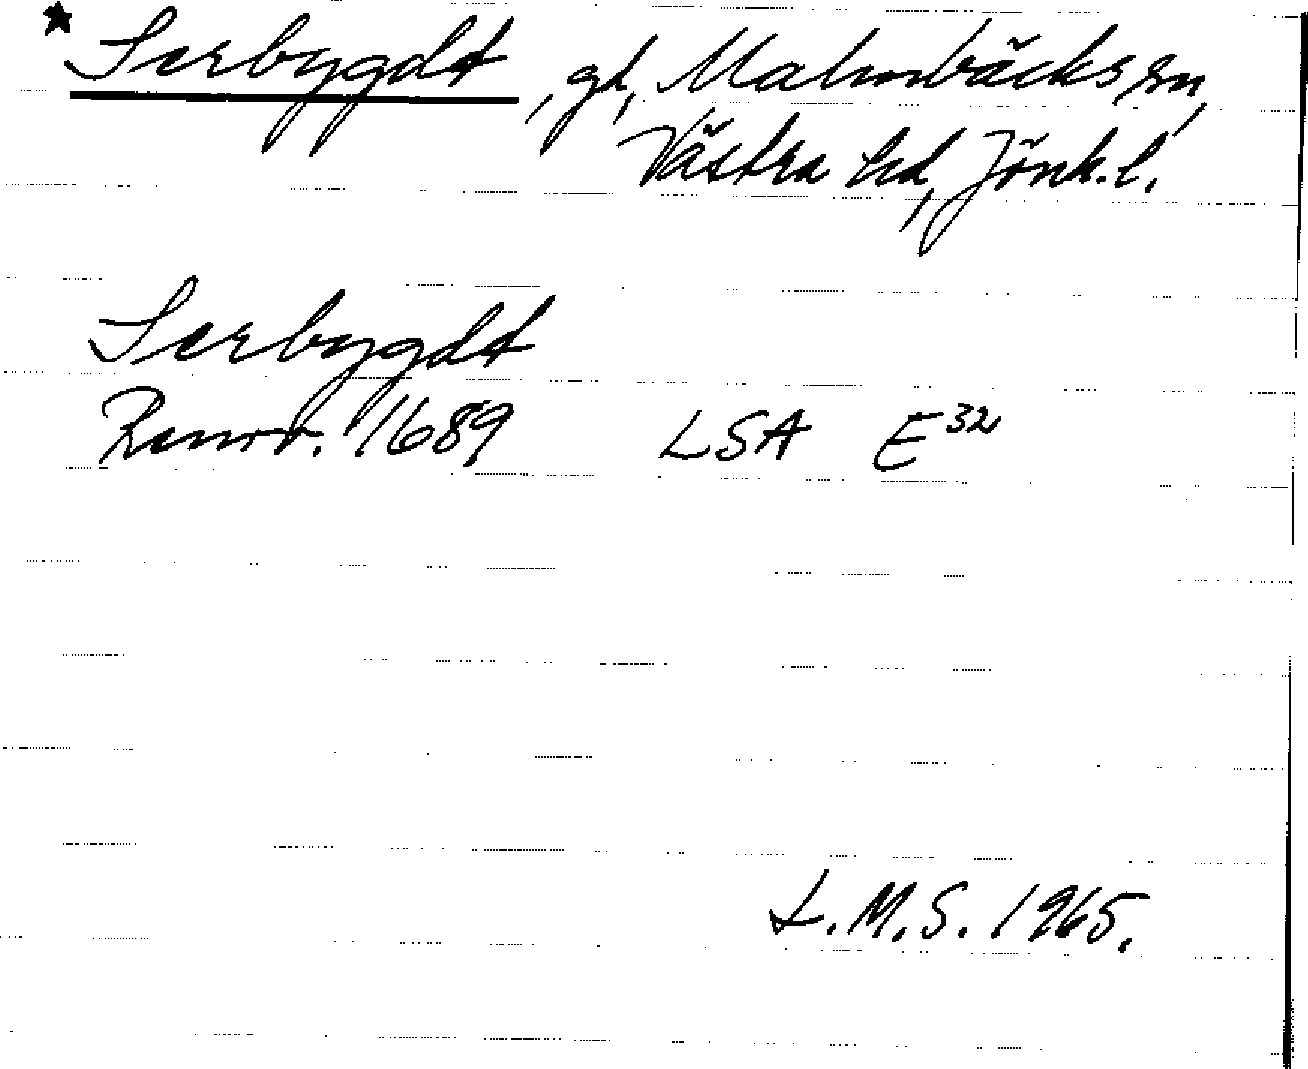 ★ Serbygdt, gd, Malmbäcks sn,
Västra hd, Jönk. l.
Serbygdt
Renov. 1689 LSA E32
L.M.S. 1965.